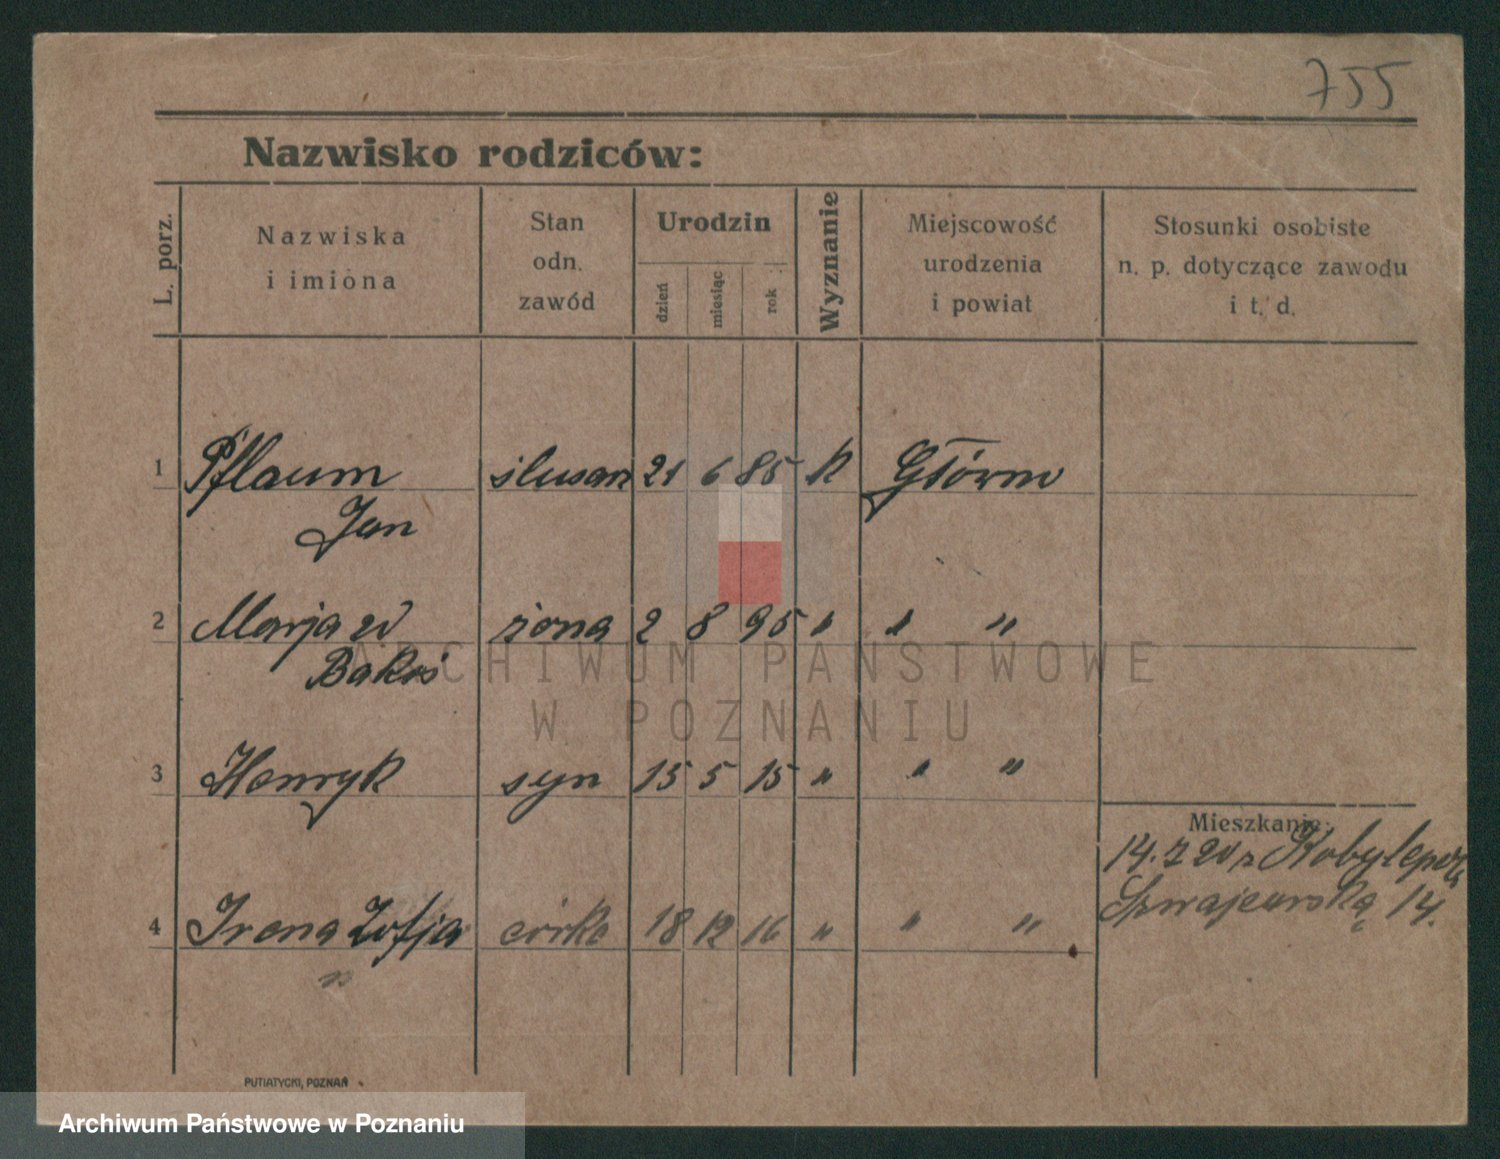 755
Nazwisko rodziców:
L. porz.
Nazwiska
i imiona
Stan
odn.
zawód
Urodzin
dzień
miesiąc
rok
Wyznanie
Miejscowość
urodzenia
i powiat
Stosunki osobiste
n. p. dotyczące zawodu
i t. d.
1 Pflaum ślusarz 21 6 85 k Główno
Jan
2 Marja żona 2 8 95 " " "
3 Henryk syn 15 5 15 " " "
Mieszkanie:
14.
14.
4 Irena Zofja córka 18 12 16 " " "
PUTIATYCKI, POZNAŃ
ARCHIWUM PAŃSTWOWE
W POZNANIU
Archiwum Państwowe w Poznaniu